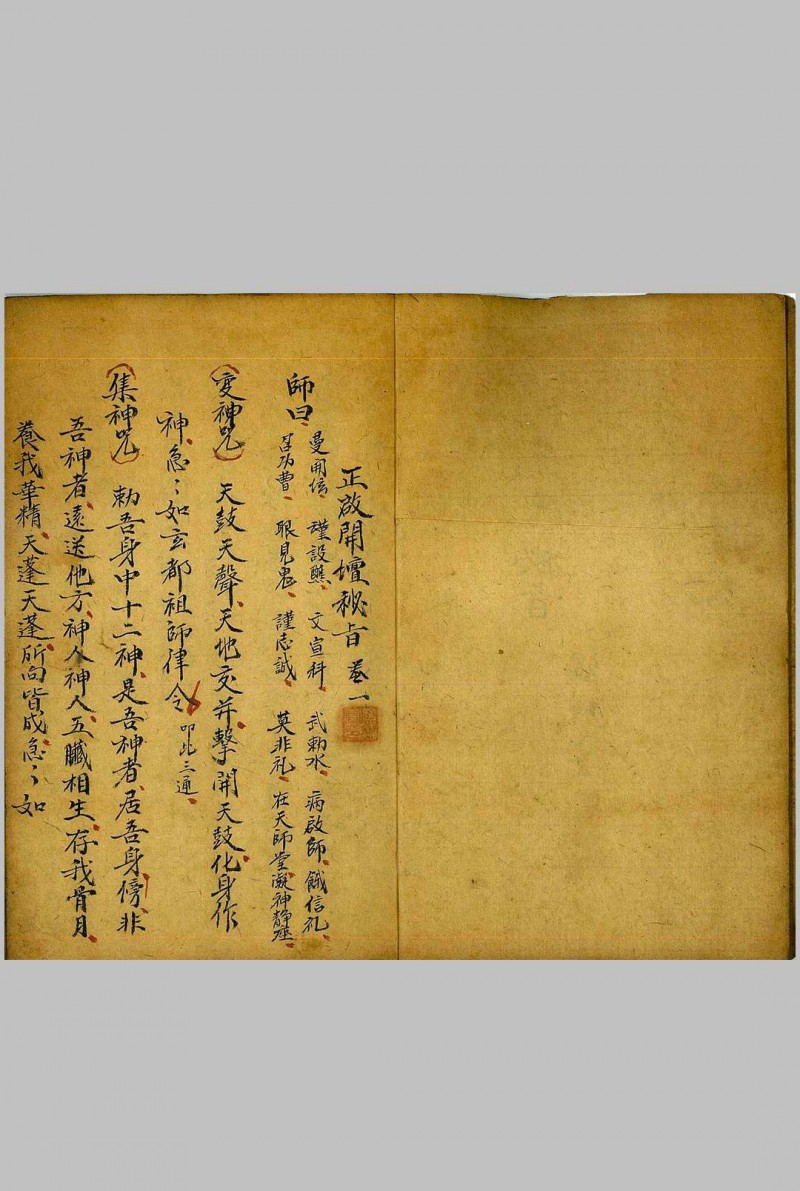 正啟開壇秘旨 卷一
師曰、曼開信、謹設醮、文宣科、武勅水、病啟師、餓信礼、
召功曹、眼見鬼、謹志誠、莫非礼、在天師堂凝神静座、
(変神咒) 天鼓天聲、天地交并、擊開天鼓、化身作
神、急〻如玄都祖師律令 叩此三通、
(集神咒) 勅吾身中十二神、是吾神者、居吾身傍、非
吾神者、遠送他方、神人神人、五臟相生、存我骨月、
養我華精、天蓬天蓬、所向皆成、急〻如